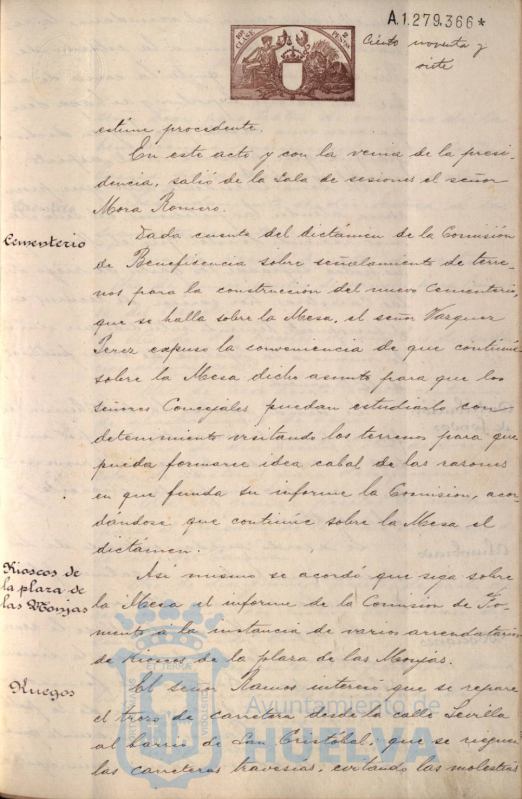 A.1.279.366*
10ª CLASE 2 PESETAS
Ciento noventa y
siete
estime procedente.
En este acto y con la venia de la presi-
dencia, salió de la Sala de sesiones el señor
Mora Romero.
Cementerio
Dada cuenta del dictámen de la Comisión
de Beneficencia sobre señalamiento de terre-
nos para la construcción del nuevo Cementerio,
que se halla sobre la Mesa, el señor Vazquez
Perez expuso la conveniencia de que continúe
sobre la Mesa dicho asunto para que los
señores Concejales puedan estudiarlo con
detenimiento visitando los terrenos para que
pueda formarse idea cabal de las razones
en que funda su informe la Comision, acor-
dándose que continúe sobre la Mesa el
dictámen.
Kioscos de
la plaza de
las Monjas
Asi mismo se acordó que siga sobre
la Mesa el informe de la Comisión de Fo-
mento á la instancia de varios arrendatarios
de Kioscos de la plaza de las Monjas.
Ruegos
El señor Ramos interesó que se repare
el trozo de carretera desde la calle Sevilla
al barrio de San Cristóbal, que se rieguen
las carreteras travesias, evitando las molestias
Ayuntamiento de
HUELVA